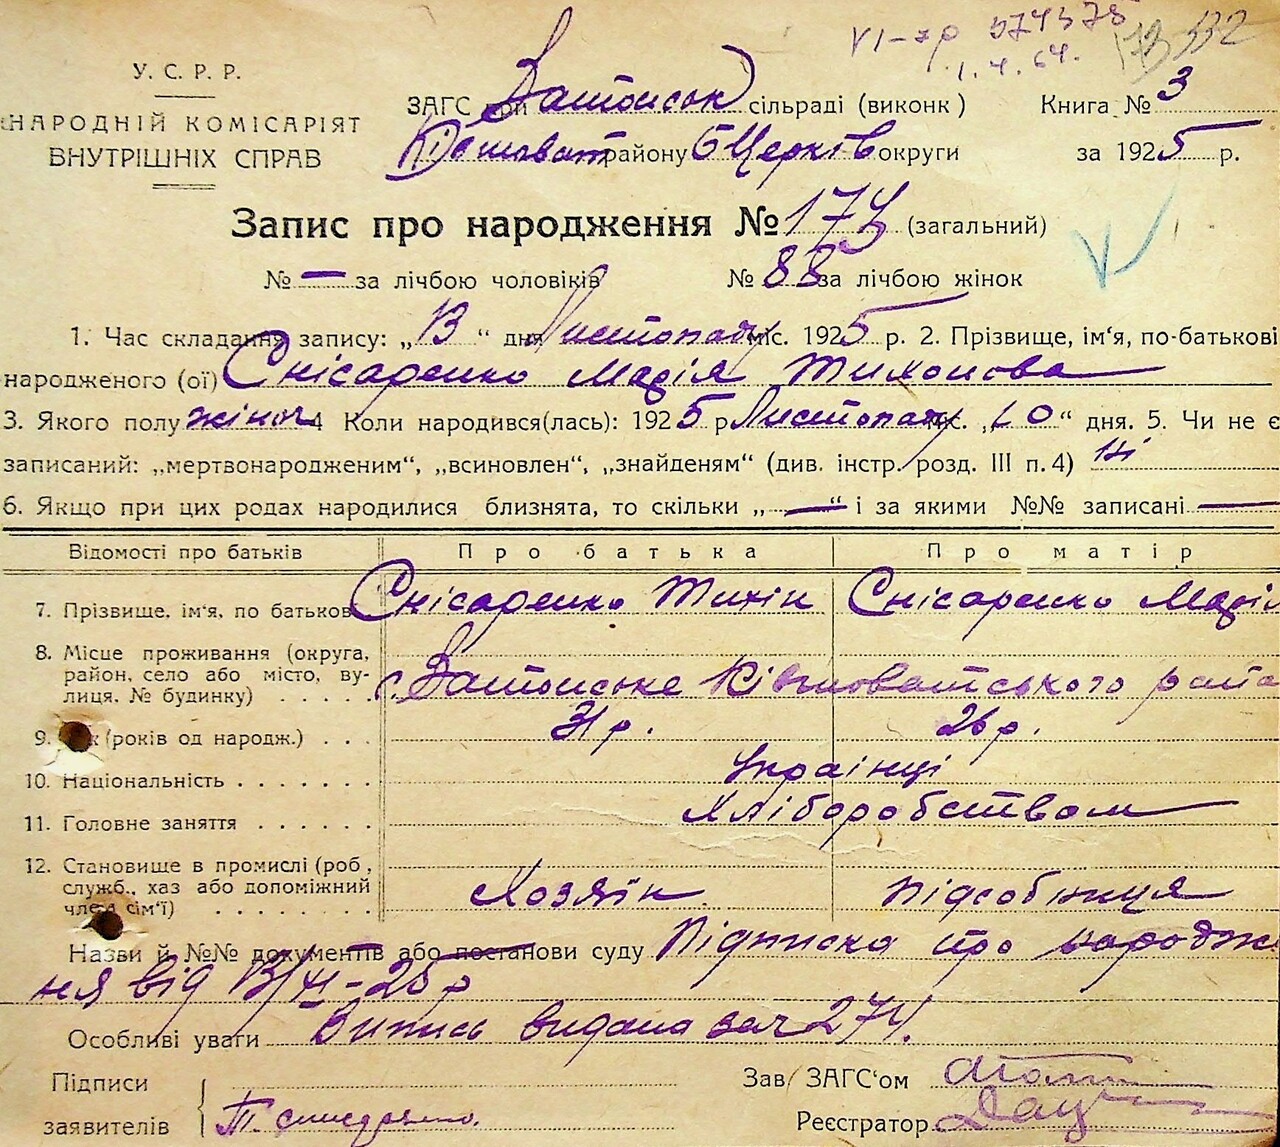 VI-яр 374375
1.4.64.
У. С. Р. Р.
НАРОДНІЙ КОМІСАРІЯТ
ВНУТРІШНІХ СПРАВ
ЗАГС при Затонськ сільраді (виконк) Книга № 3
Ківшоват району БЦерків округи за 1925 р.
Запис про народження № 174 (загальний)
№ — за лічбою чоловіків № 88 за лічбою жінок
1. Час складання запису: „13“ дня Листопаду міс. 1925 р. 2. Прізвище, ім'я, по-батькові
народженого (ої) Снісаренко Марія Тихонова
3. Якого полу жіноч 4 Коли народився(лась): 1925 р Листопаду міс. „10“ дня. 5. Чи не є
записаний: „мертвонародженим“, „всиновлен“, „знайденям“ (див. інстр. розд. III п. 4) ні
6. Якщо при цих родах народилися близнята, то скільки „—“ і за якими №№ записані —
Відомості про батьків Про батька Про матір
7. Прізвище, ім'я, по батьков Снісаренко Тихін Снісаренко Марія
8. Місце проживання (округа,
район, село або місто, ву-
лиця, № будинку) с. Затонське Ківшоватського райо
9. (років од народж.) 31 р. 26 р.
10. Національність Українці
11. Головне заняття Хліборобством
12. Становище в промислі (роб.,
служб., хаз або допоміжний
член сім'ї) Хозяїн підсобниця
Назви й №№ документів або постанови суду Підписка про народже
ня від 13/XI-25 р
Особливі уваги Випись видана за ч 274.
Підписи Зав/ ЗАГС'ом
заявителів Т. Снисаренко. Реєстратор